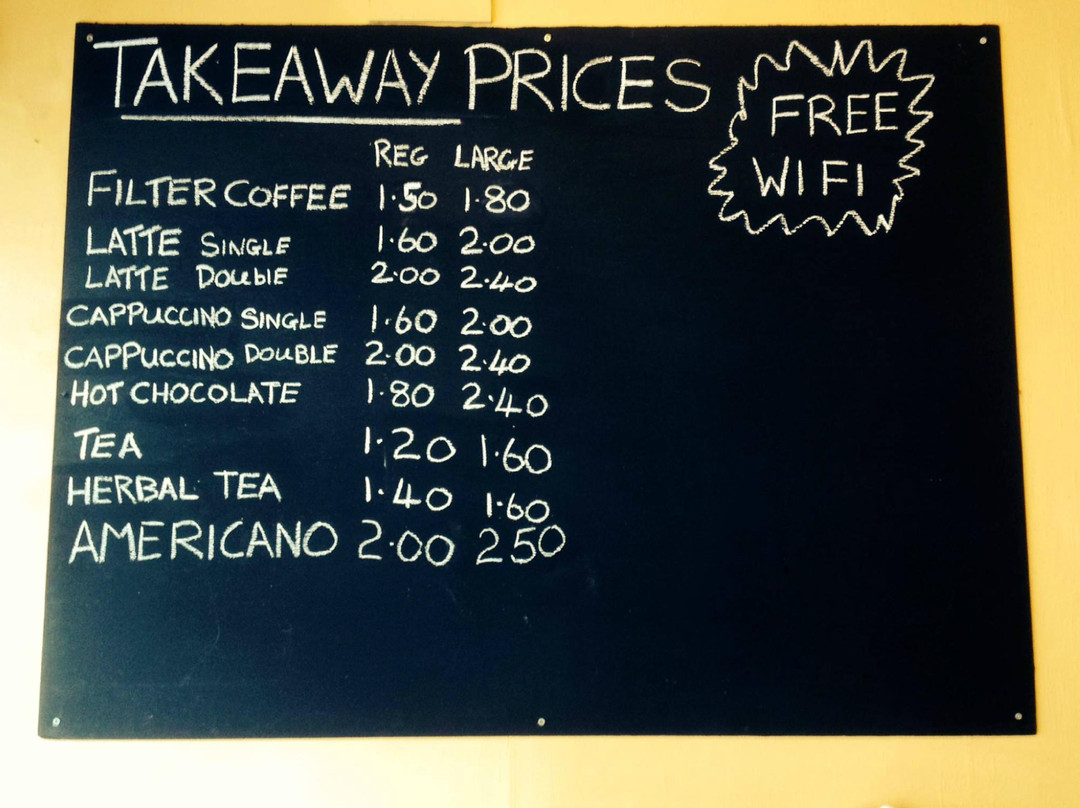 TAKEAWAY PRICES
FREE
WIFI
REG LARGE
FILTER COFFEE 1·50 1·80
LATTE SINGLE 1·60 2·00
LATTE DOUblE 2·00 2·40
CAPPUCCINO SINGLE 1·60 2·00
CAPPUCCINO DOUBLE 2·00 2·40
HOT CHOCOLATE 1·80 2·40
TEA 1·20 1·60
HERBAL TEA 1·40 1·60
AMERICANO 2·00 250